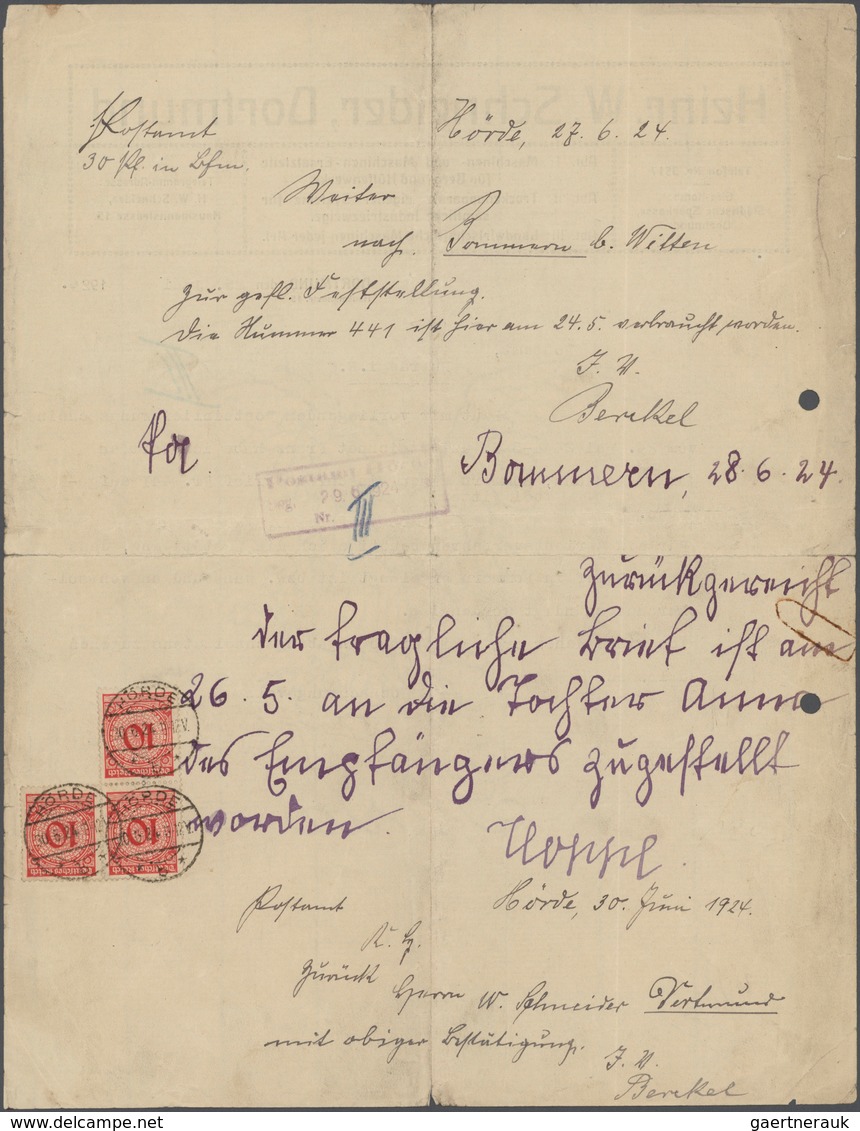 Postamt
Hörde, 27. 6. 24.
30 Pf. in Bfm.
Weiter
nach Bommern b. Witten
zur gefl. Feststellung.
Die Nummer 441 ist hier am 24.5. verbraucht worden.
J. V.
Berckel
Bommern, 28. 6. 24.
29.
Nr.
III
Zurückgereicht
der fragliche Brief ist am
26. 5. an die Tochter Anna
des Empfängers zugestellt
worden.
HÖRDE
10
Deutsches Reich
HÖRDE
HÖRDE
10
10
Deutsches Reich
Deutsches Reich
Postamt
Hörde, 30. Juni 1924.
Zurück
Herrn W. Schneider Dortmund
mit obiger Bestätigung.
J. V.
Berckel
gaertnerauk